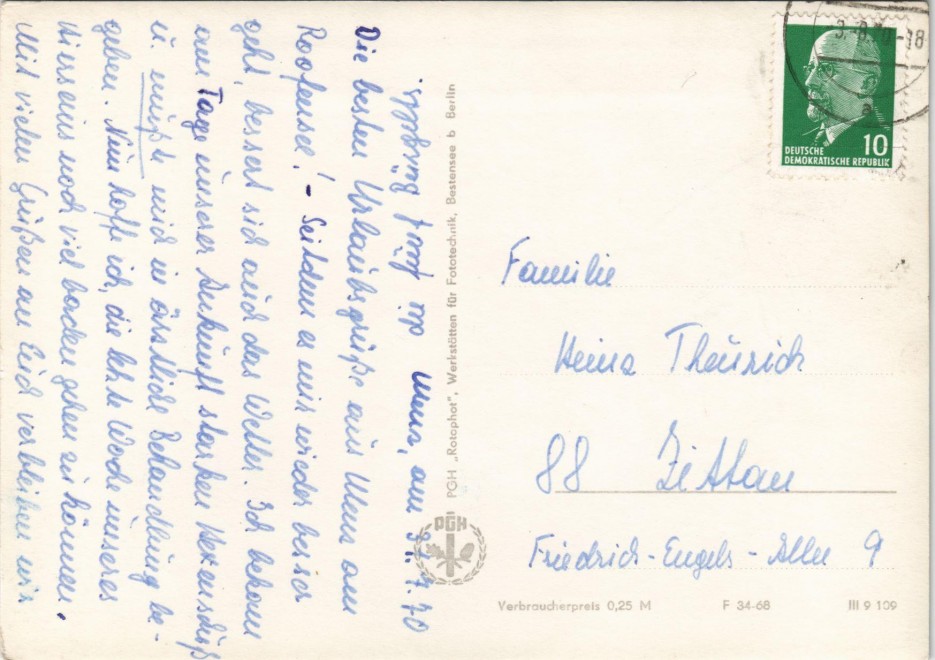 Menz, am 31.7.70
Die besten Urlaubsgrüße aus Menz am
Roofensee! – Seitdem es mir wieder besser
geht, bessert sich auch das Wetter. Ich bekam
am Tage unserer Ankunft starken Hexenschuß
u. mußte mich in ärztliche Behandlung be-
geben. Nun hoffe ich, die letzte Woche unseres
Hierseins noch viel baden gehen zu können.
Mit vielen Grüßen an Euch verbleiben wir
PGH „Rotophot", Werkstätten für Fototechnik, Bestensee b Berlin
PGH
3.-8.70-18
a
10
DEUTSCHE
DEMOKRATISCHE REPUBLIK
Familie
Heinz Theurich
88 Zittau
Friedrich-Engels-Allee 9
Verbraucherpreis 0,25 M F 34-68 III 9 109